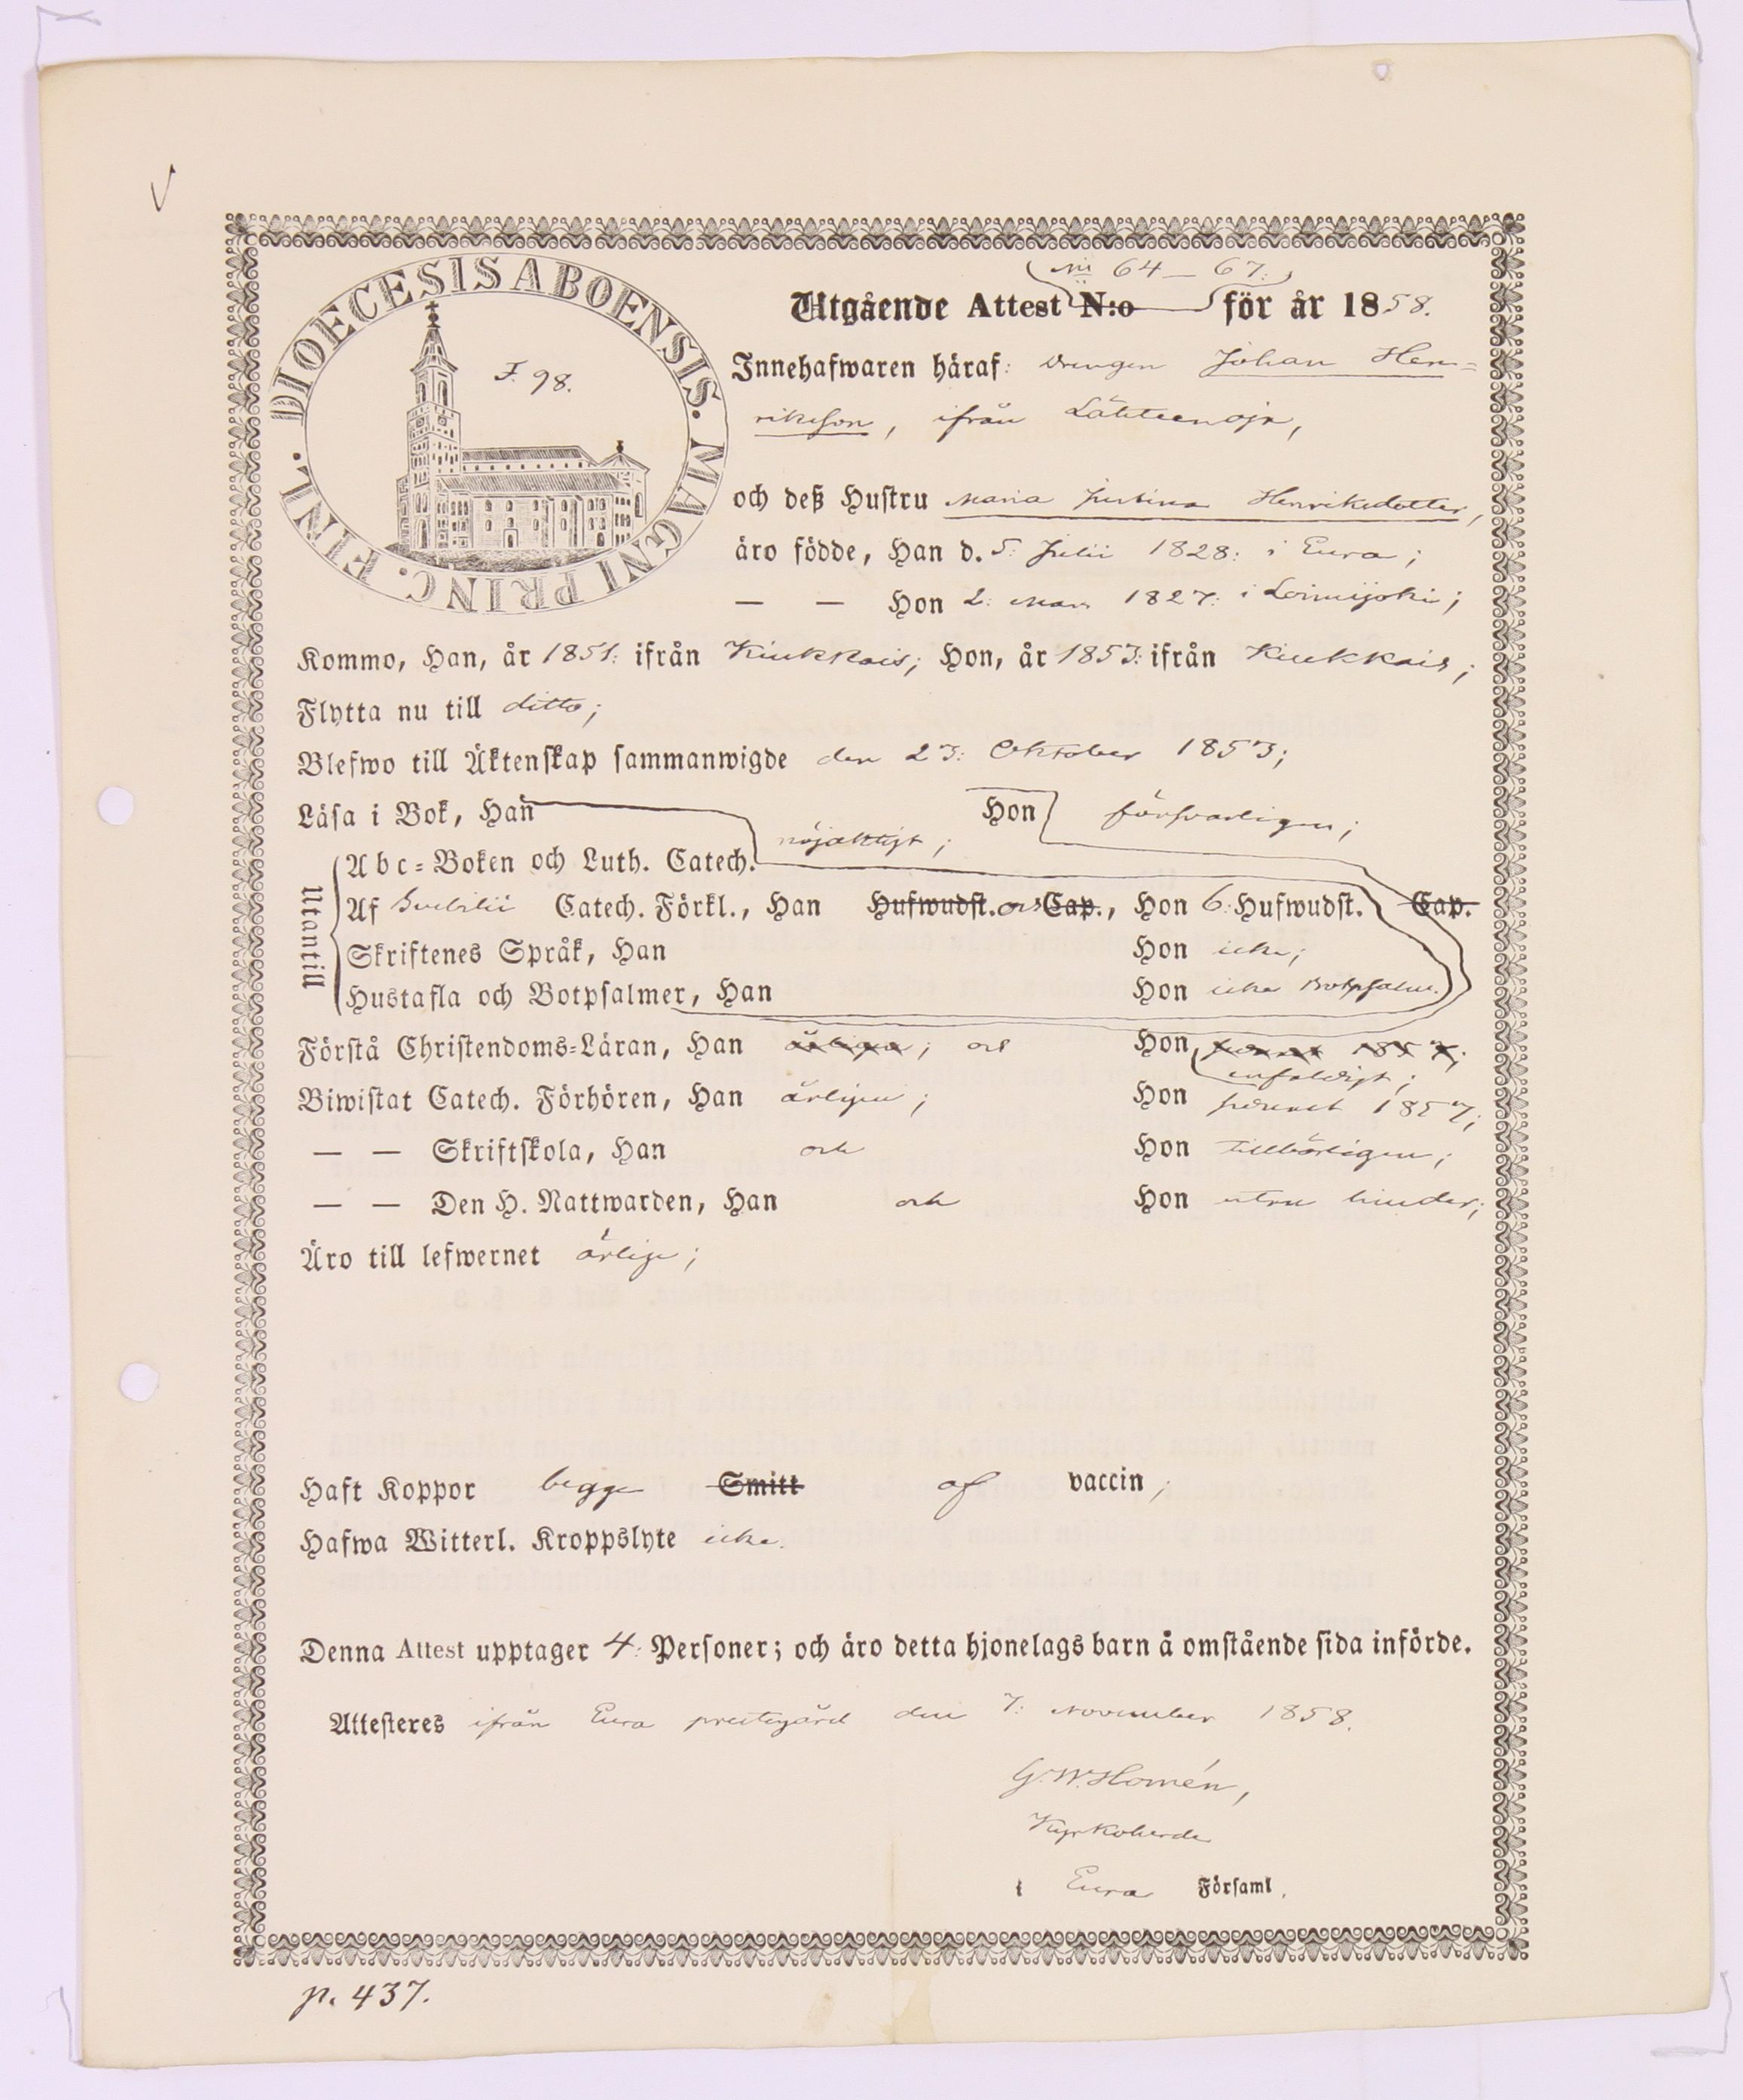 DIOECESIS ABOENSIS. MAGNI PRINC. FINL.
F. 98.
N:ris 64–67.
Utgående Attest N:o för år 1858.
Innehafwaren häraf: Drengen Johan Hen=
rikeson, ifrån Lähteenoja,
och deß Hustru Maria Justina Henriksdotter,
äro födde, Han d. 5: Julii 1828: i Eura;
— — Hon 2: Mars 1827: i Loimijoki;
Kommo, Han, år 1851: ifrån Kiukkais; Hon, år 1853: ifrån Kiukkais;
Flytta nu till ditto;
Blefwo till Äktenskap sammanwigde den 23: Oktober 1853;
Läsa i Bok, Han nöjaktigt; Hon försvarligen;
Utantill
Abc=Boken och Luth. Catech.
Af Svebilii Catech. Förkl., Han Hufwudst. och Cap., Hon 6: Hufwudst. Cap.
Skriftenes Språk, Han Hon icke;
Hustafla och Botpsalmer, Han Hon icke Botpsalm.
Förstå Christendoms=Läran, Han årligen; och Hon 1857;
enfaldigt;
Biwistat Catech. Förhören, Han årligen; Hon senast 1857;
— — Skriftskola, Han och Hon tillbörligen;
— — Den H. Nattwarden, Han och Hon utan hinder;
Äro till lefwernet ärlige;
Haft Koppor begge Smitt af vaccin;
Hafwa Witterl. Kroppslyte icke.
Denna Attest upptager 4: Personer; och äro detta hjonelags barn å omstående sida införde.
Attesteres ifrån Eura prestegård den 7: November 1858.
G. W. Homén,
Kyrkoherde
i Eura Församl.
p. 437.